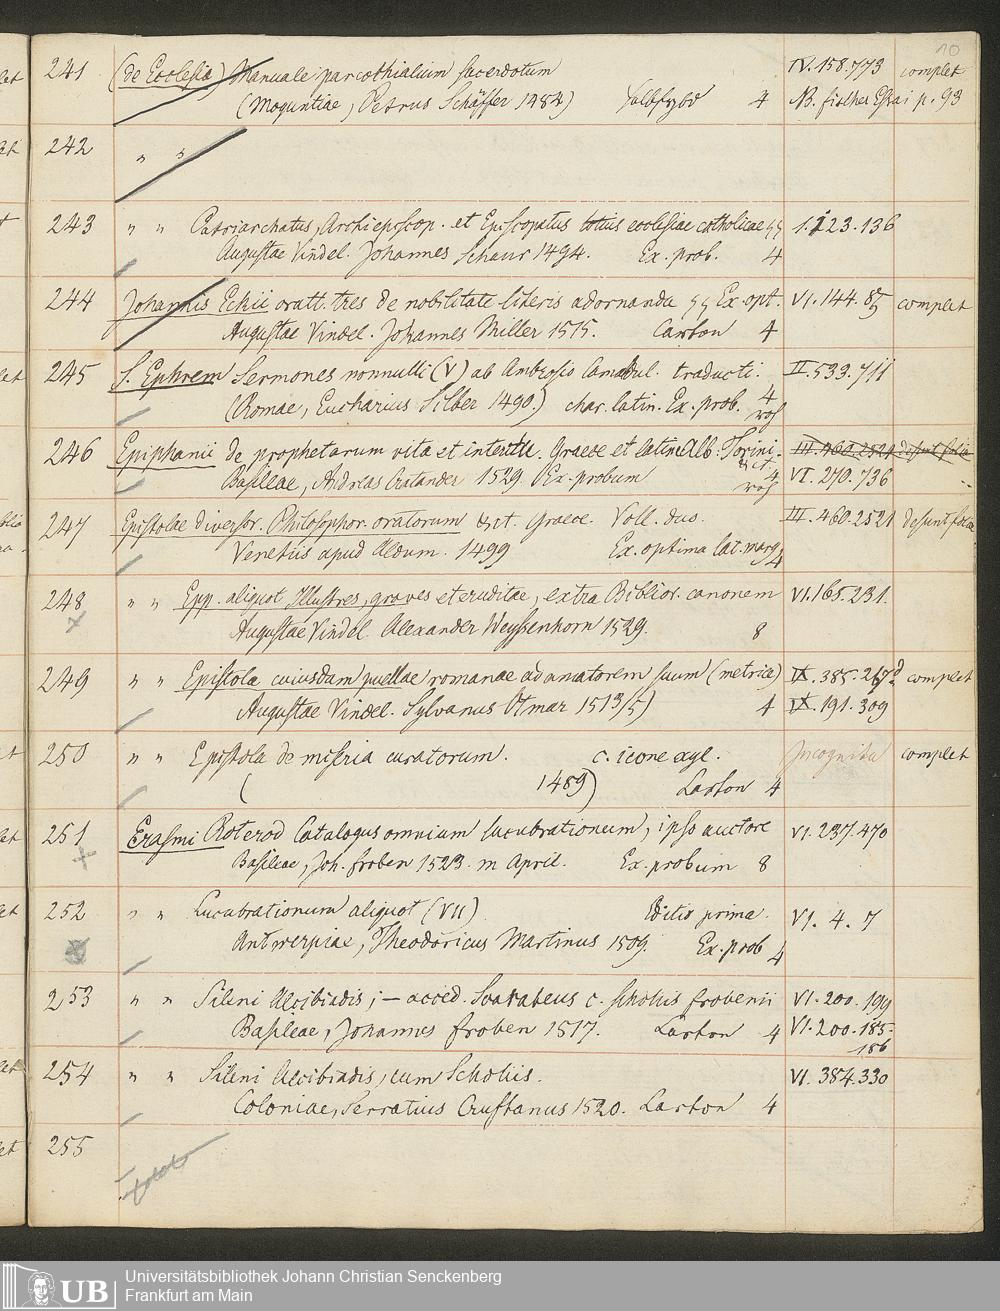 10
241 (de Ecclesia) Manuale parochialium sacerdotum IV. 158.773 complet
(Moguntiae, Petrus Schäffer 1484) 4 NB. fischer Essai p. 93
242 " "
243 " " Patriarchatus, Archiepiscop. et Episcopatus totius ecclesiae catholicae 1.123.136
Augustae Vindel. Johannes Schaur 1494. Ex. prob. 4
244 Johannis Eckii oratt. tres de nobilitate literis adornanda Ex. opt. VI. 144. 85 complet
Augustae Vindel. Johannes Miller 1515. Carton 4
245 S. Ephrem Sermones nonnulli (V) ab Ambrosio Camadul. traducti. II. 533. 711
(Romae, Eucharius Silber 1490.) char. latin. Ex. prob. 4
246 Epiphanii de prophetarum vita et interitu. Graece et latine Alb: Torini. III. 460. 2521 desunt folia
Basileae, Andreas Cratander 1529. Ex. probum 4 VI. 270. 736
247 Epistolae diversor. Philosophor. oratorum Graece. Voll. duo. III. 460. 2521 desunt folia
Venetiis apud Aldum. 1499 Ex. optima lat. marg. 4
248 " " Epp. aliquot Illustres, graves et eruditae, extra Biblior. canonem VI. 165. 231.
Augustae Vindel. Alexander Weyssenhorn 1529. 8
249 " " Epistola cuiusdam puellae romanae ad amatorem suum (metrice) IX. 385. 267 complet
Augustae Vindel. Sylvanus Otmar 1513/5) 4 IX. 191. 309
250 " " Epistola de miseria curatorum. c. icone xyl. Incognita complet
( 1489) Carton 4
251 Erasmi Roterod Catalogus omnium lucubrationum, ipso auctore VI. 237. 470
Basileae, Joh. froben 1523. m April. Ex. probum 8
252 " " Lucubrationum aliquot (VII) Editio prima. VI. 4. 7
Antwerpiae, Theodoricus Martinus 1509. Ex. prob 4
253 " " Sileni Alcibiadis; — acced. Scarabeus c. scholiis frobenii VI. 200. 199
Basileae, Johannes froben 1517. Carton 4 VI. 200. 185-
186
254 " " Sileni Alcibiadis, cum Scholiis. VI. 384. 330
Coloniae, Serratius Cruftanus 1520. Carton 4
255
UB Universitätsbibliothek Johann Christian Senckenberg
Frankfurt am Main